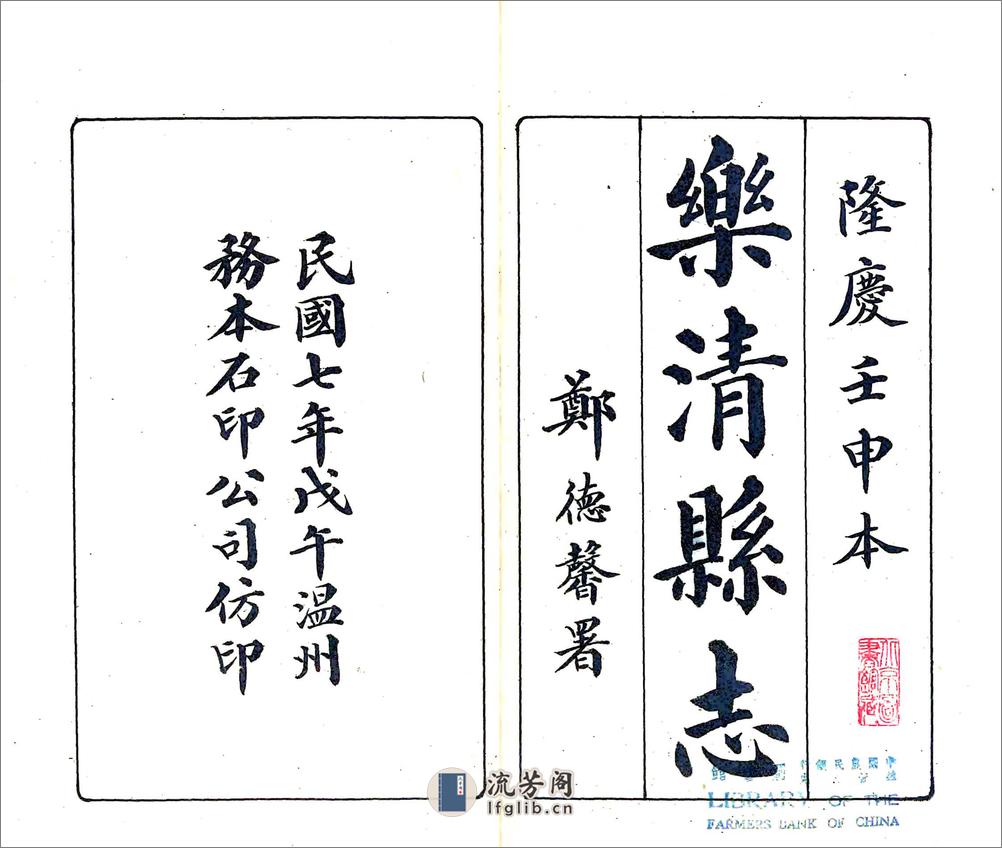 隆慶壬申本
樂清縣志
鄭德馨署
民國七年戊午温州
務本石印公司仿印
LIBRARY OF THE
FARMERS BANK OF CHINA
流芳阁
lfglib.cn